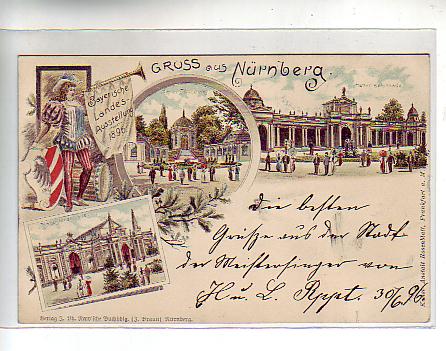 GRUSS aus Nürnberg.
Bayerische
Landes
Ausstellung
1896.
Die besten
Grüsse aus der Stadt
der Meistersinger von
H u. L. Rppt. 30/6 96
Verlag J. Ph. Raw'sche Buchhdlg. (J. Braun) Nürnberg.
Kunst-Anstalt Rosenblatt, Frankfurt a. M.